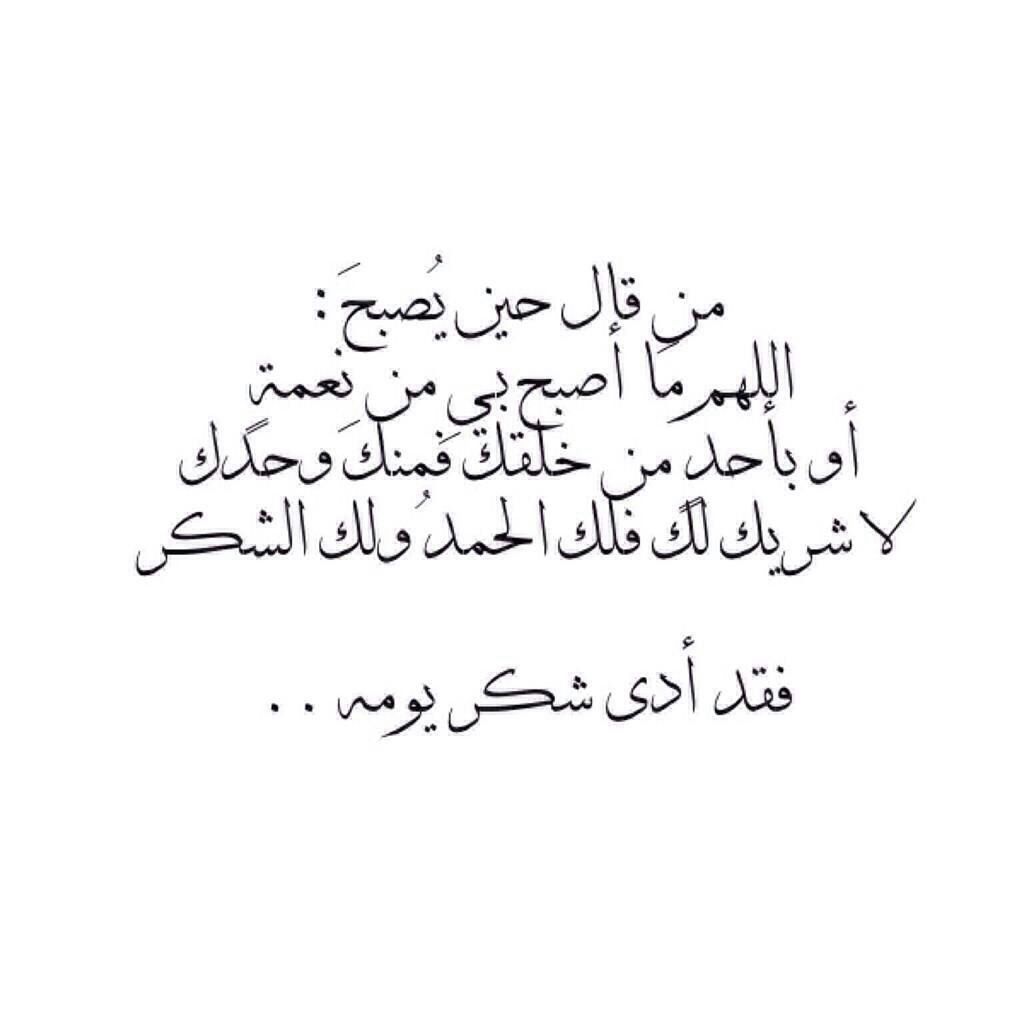 من قال حين يُصبحَ :
اللهم مَا أصبح بي من نعمة
أو بأحد من خلقكَ فمنكَ وحدَك
لا شريك لكَ فلك الحمدُ ولك الشكر
فقد أدى شكر يومه . .